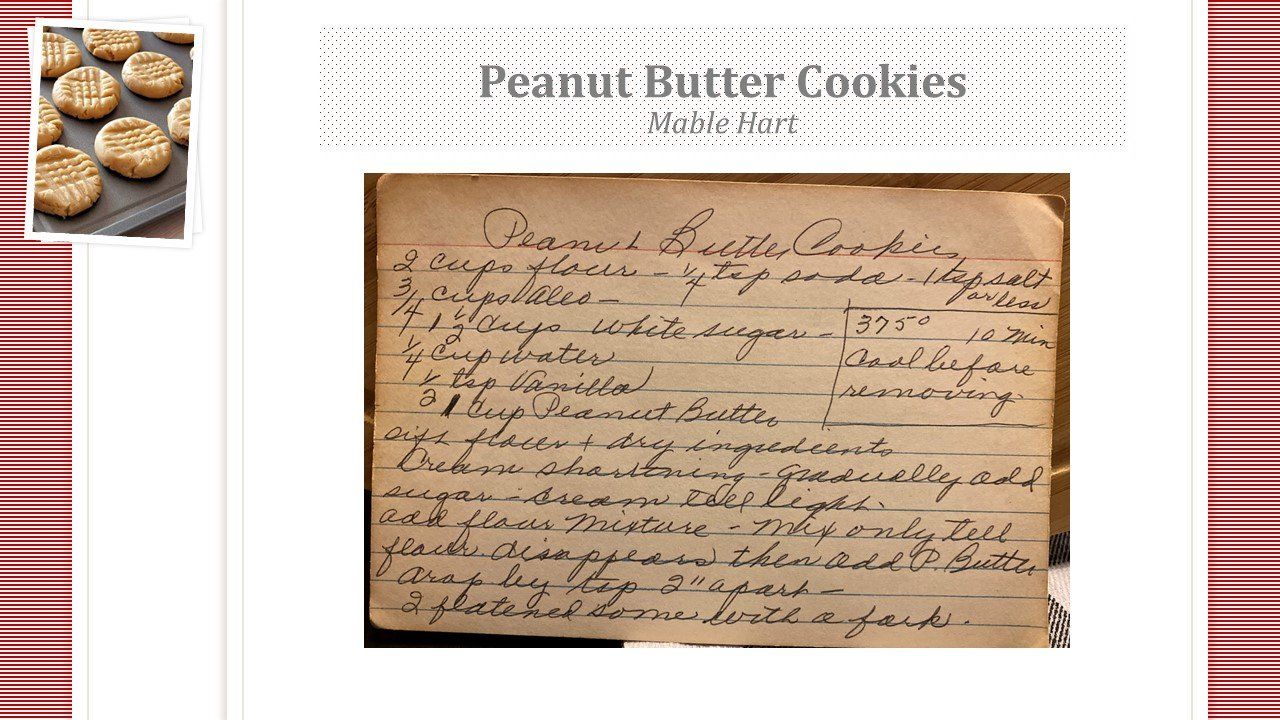 Peanut Butter Cookies
Mable Hart
Peanut Butter Cookies
2 cups flour - 1/4 tsp soda - 1 tsp salt
or less
3/4 cups oleo -
1 1/2 cups white sugar -
1/4 cup water
1/2 tsp Vanilla
1 cup Peanut Butter
375° 10 Min
Cool before
removing
sift flour + dry ingredients
Cream shortining - gradually add
sugar - cream till light.
add flour mixture - mix only till
flour disappears then add P. Butter
drop by tsp 2" apart -
I flatened some with a fork.